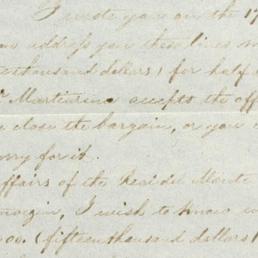 I wrote you on the 17
address you these lines
thousand dollars) for half
accepts the off
close the bargain, or you
sorry for it.
affairs of the Real del Monte
margin, I wish to know
00. (fifteen thousand dollars)